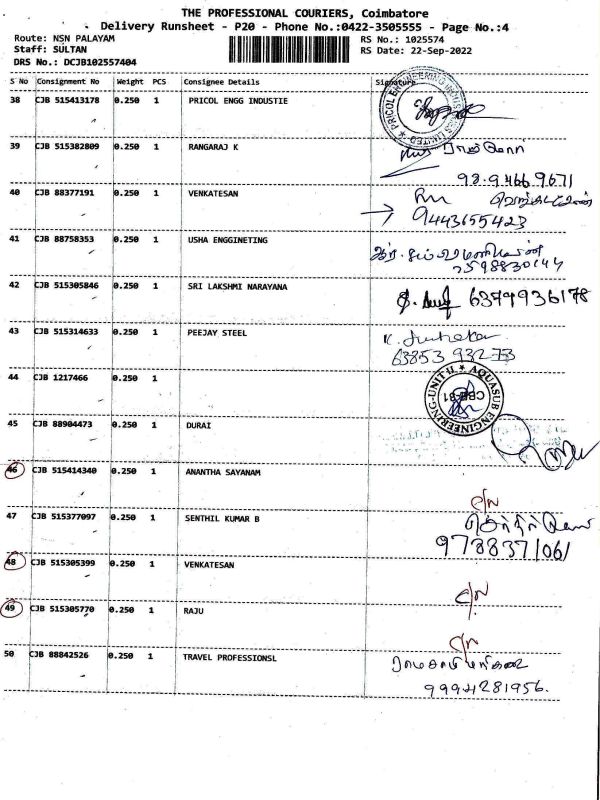 THE PROFESSIONAL COURIERS, Coimbatore
Delivery Runsheet - P20 - Phone No.:0422-3505555 - Page No.:4
Route: NSN PALAYAM RS No.: 1025574
Staff: SULTAN RS Date: 22-Sep-2022
DRS No.: DCJB102557404
S No Consignment No Weight PCS Consignee Details Signature
38 CJB 515413178 0.250 1 PRICOL ENGG INDUSTIE
PRICOL ENGINEERING INDUSTRIES LIMITED
39 CJB 515382809 0.250 1 RANGARAJ K
98.94669671
40 CJB 88377191 0.250 1 VENKATESAN
9443655423
41 CJB 88758353 0.250 1 USHA ENGGINETING
7598830144
42 CJB 515305846 0.250 1 SRI LAKSHMI NARAYANA 6379936178
43 CJB 515314633 0.250 1 PEEJAY STEEL
63853 93273
44 CJB 1217466 0.250 1
AQUASUB ENGINEERING-UNIT II
CBE-81
45 CJB 88904473 0.250 1 DURAI
46 CJB 515414340 0.250 1 ANANTHA SAYANAM
47 CJB 515377097 0.250 1 SENTHIL KUMAR B
9788371061
48 CJB 515305399 0.250 1 VENKATESAN
49 CJB 515305770 0.250 1 RAJU
50 CJB 88842526 0.250 1 TRAVEL PROFESSIONSL
9994281956.